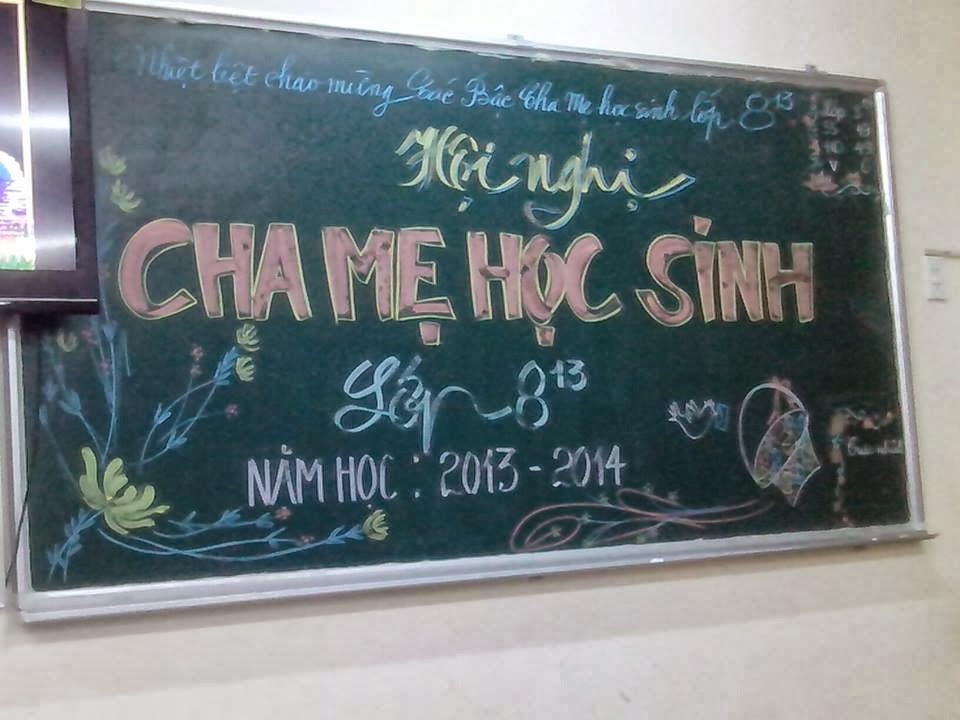 Nhiệt liệt chào mừng Các Bậc Cha Mẹ học sinh lớp 8¹³
Hội nghị
CHA MẸ HỌC SINH
Lớp 8¹³
NĂM HỌC : 2013 - 2014